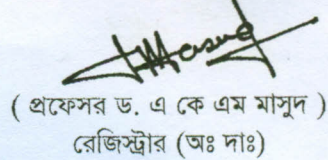 ( প্রফেসর ড. এ কে এম মাসুদ )
রেজিস্ট্রার (অঃ দাঃ)